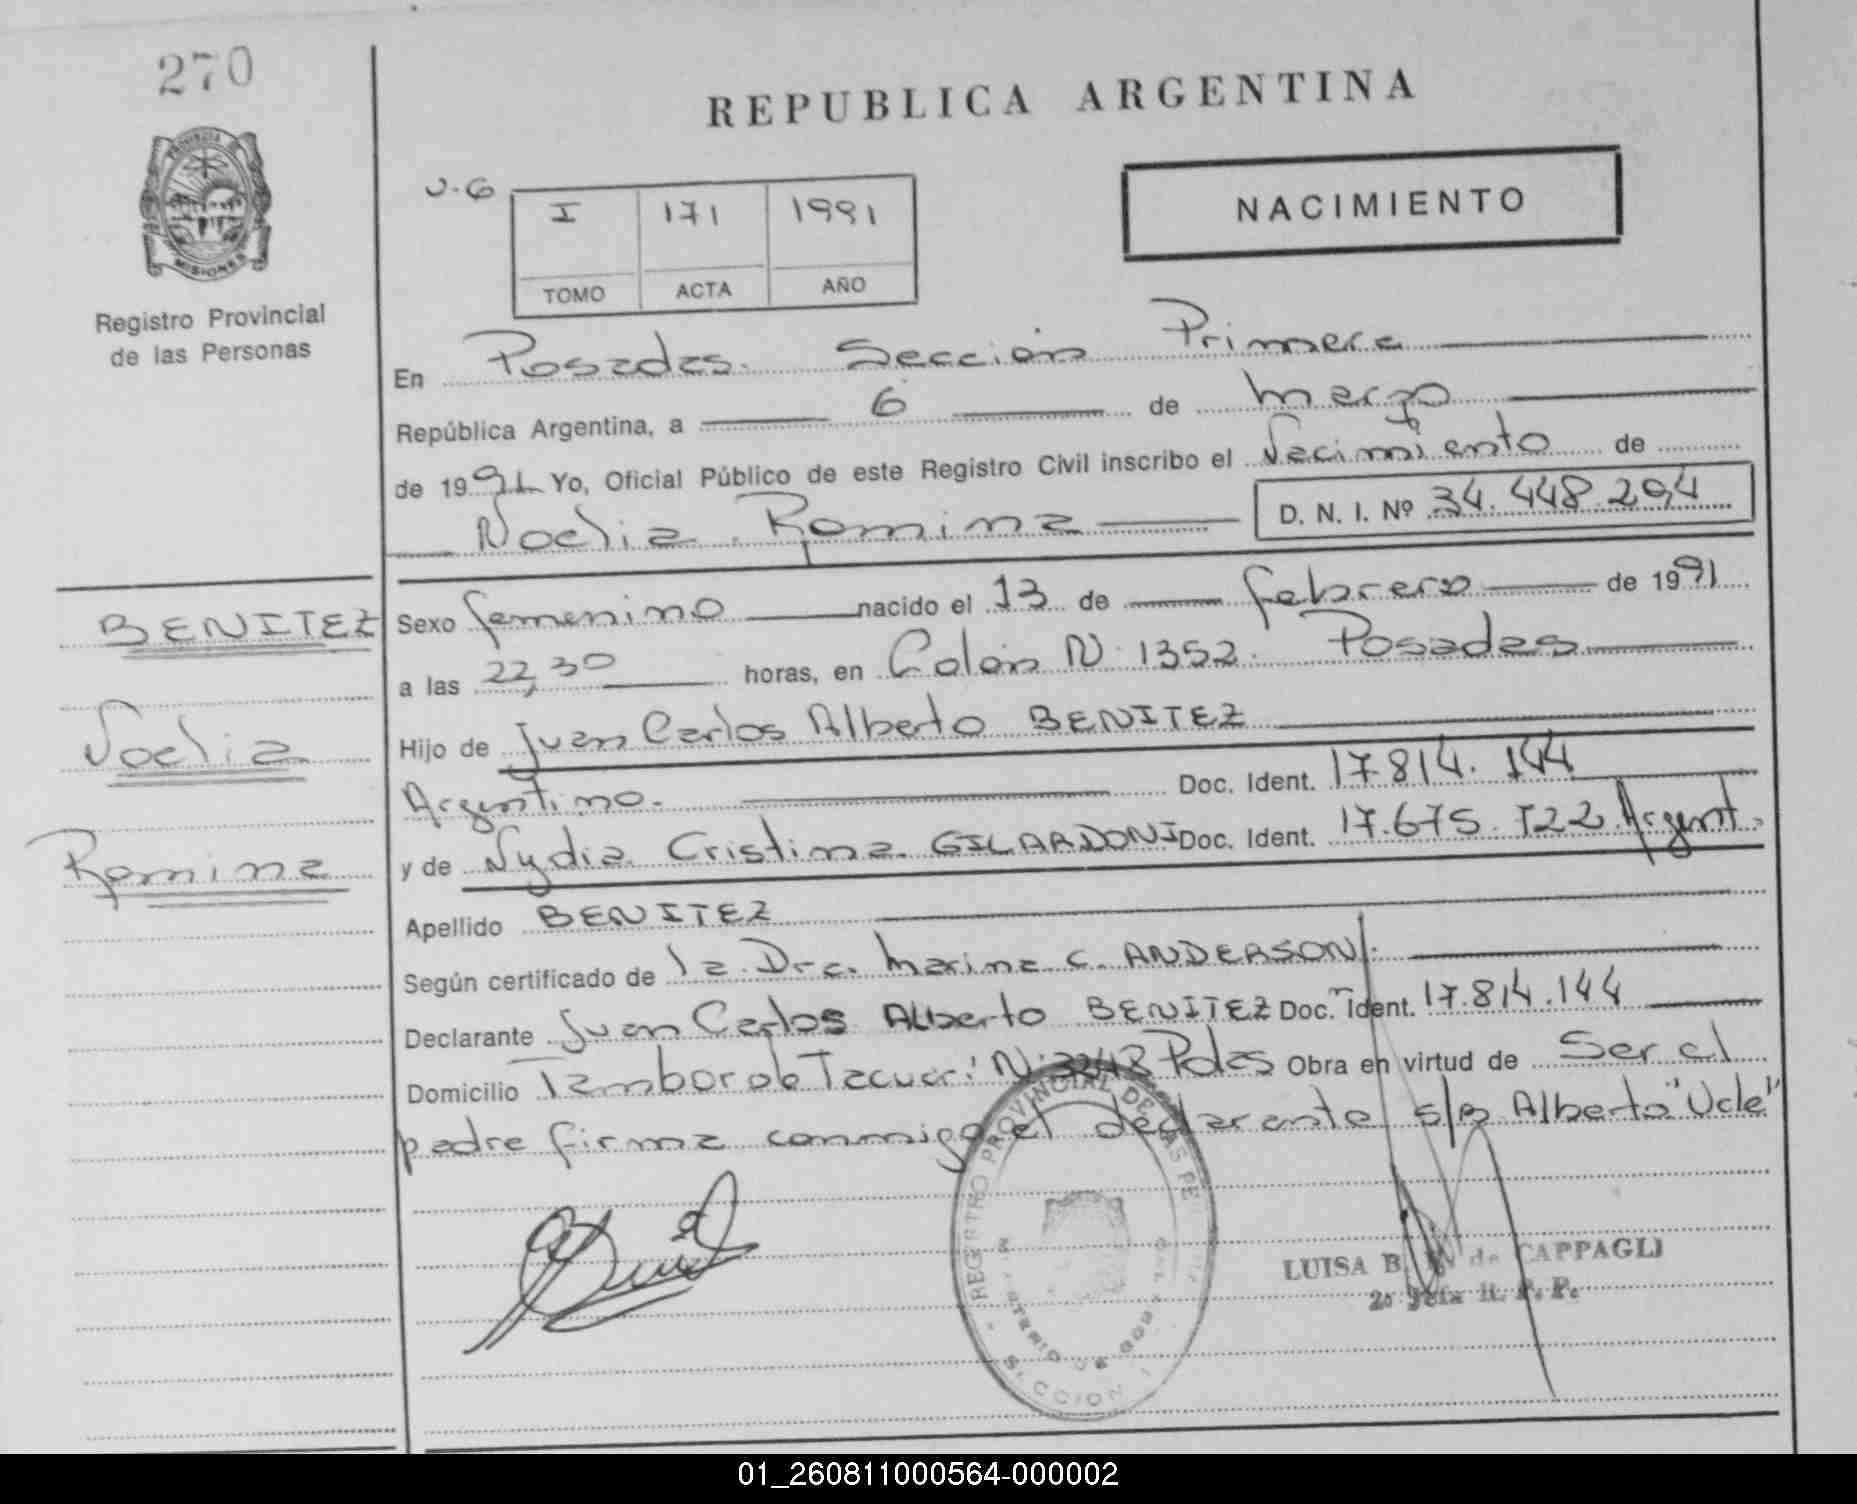 270
REPUBLICA ARGENTINA
PROVINCIA
MISIONES
Registro Provincial
de las Personas
NACIMIENTO
I 171 1991
TOMO ACTA AÑO
En Posadas. Sección Primera
República Argentina, a 6 de marzo
de 1991 Yo, Oficial Público de este Registro Civil inscribo el Nacimiento de
Noelia Romina D. N. I. Nº 34.448.294
BENITEZ
Noelia
Romina
Sexo femenino nacido el 13 de febrero de 1991
a las 22,30 horas, en Colón N 1352. Posadas
Hijo de Juan Carlos Alberto BENITEZ
Argentino. Doc. Ident. 17.814.144
y de Nydia Cristina GILARDONI Doc. Ident. 17.675.722 Argent.
Apellido BENITEZ
Según certificado de la Dra. Marina C. ANDERSON.
Declarante Juan Carlos Alberto BENITEZ Doc. Ident. 17.814.144
Domicilio Tambor de Tacuarí N: Pdas Obra en virtud de Ser el
padre firma conmigo el declarante s/b Alberto "Vale"
REGISTRO PROVINCIAL DE LAS PE
SECCION 1
LUISA B. de CAPPAGLI
2a Jefa R. P. P.
01_260811000564-000002